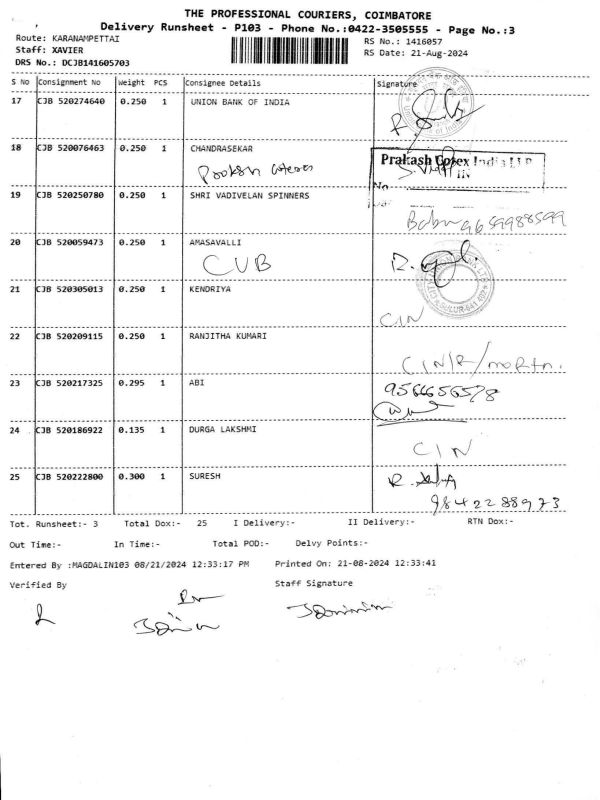 THE PROFESSIONAL COURIERS, COIMBATORE
Delivery Runsheet - P103 - Phone No.:0422-3505555 - Page No.:3
Route: KARANAMPETTAI
RS No.: 1416057
Staff: XAVIER
RS Date: 21-Aug-2024
DRS No.: DCJB141605703
S No Consignment No Weight PCS Consignee Details Signature
17 CJB 520274640 0.250 1 UNION BANK OF INDIA
18 CJB 520076463 0.250 1 CHANDRASEKAR
Prakash Gotex India LLP
19 CJB 520250780 0.250 1 SHRI VADIVELAN SPINNERS
Babu 9659988599
20 CJB 520059473 0.250 1 AMASAVALLI
CUB
21 CJB 520305013 0.250 1 KENDRIYA
SULUR-641 402
CIN
22 CJB 520209115 0.250 1 RANJITHA KUMARI
CIN/R/
23 CJB 520217325 0.295 1 ABI
9566656578
24 CJB 520186922 0.135 1 DURGA LAKSHMI
CIN
25 CJB 520222800 0.300 1 SURESH
9842288973
Tot. Runsheet:- 3 Total Dox:- 25 I Delivery:- II Delivery:- RTN Dox:-
Out Time:- In Time:- Total POD:- Delvy Points:-
Entered By :MAGDALIN103 08/21/2024 12:33:17 PM Printed On: 21-08-2024 12:33:41
Verified By Staff Signature